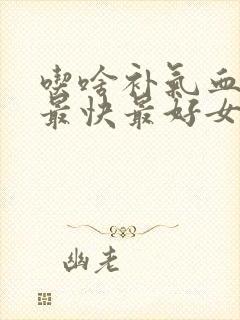 喫啥补氣血
最快最好女
幽老